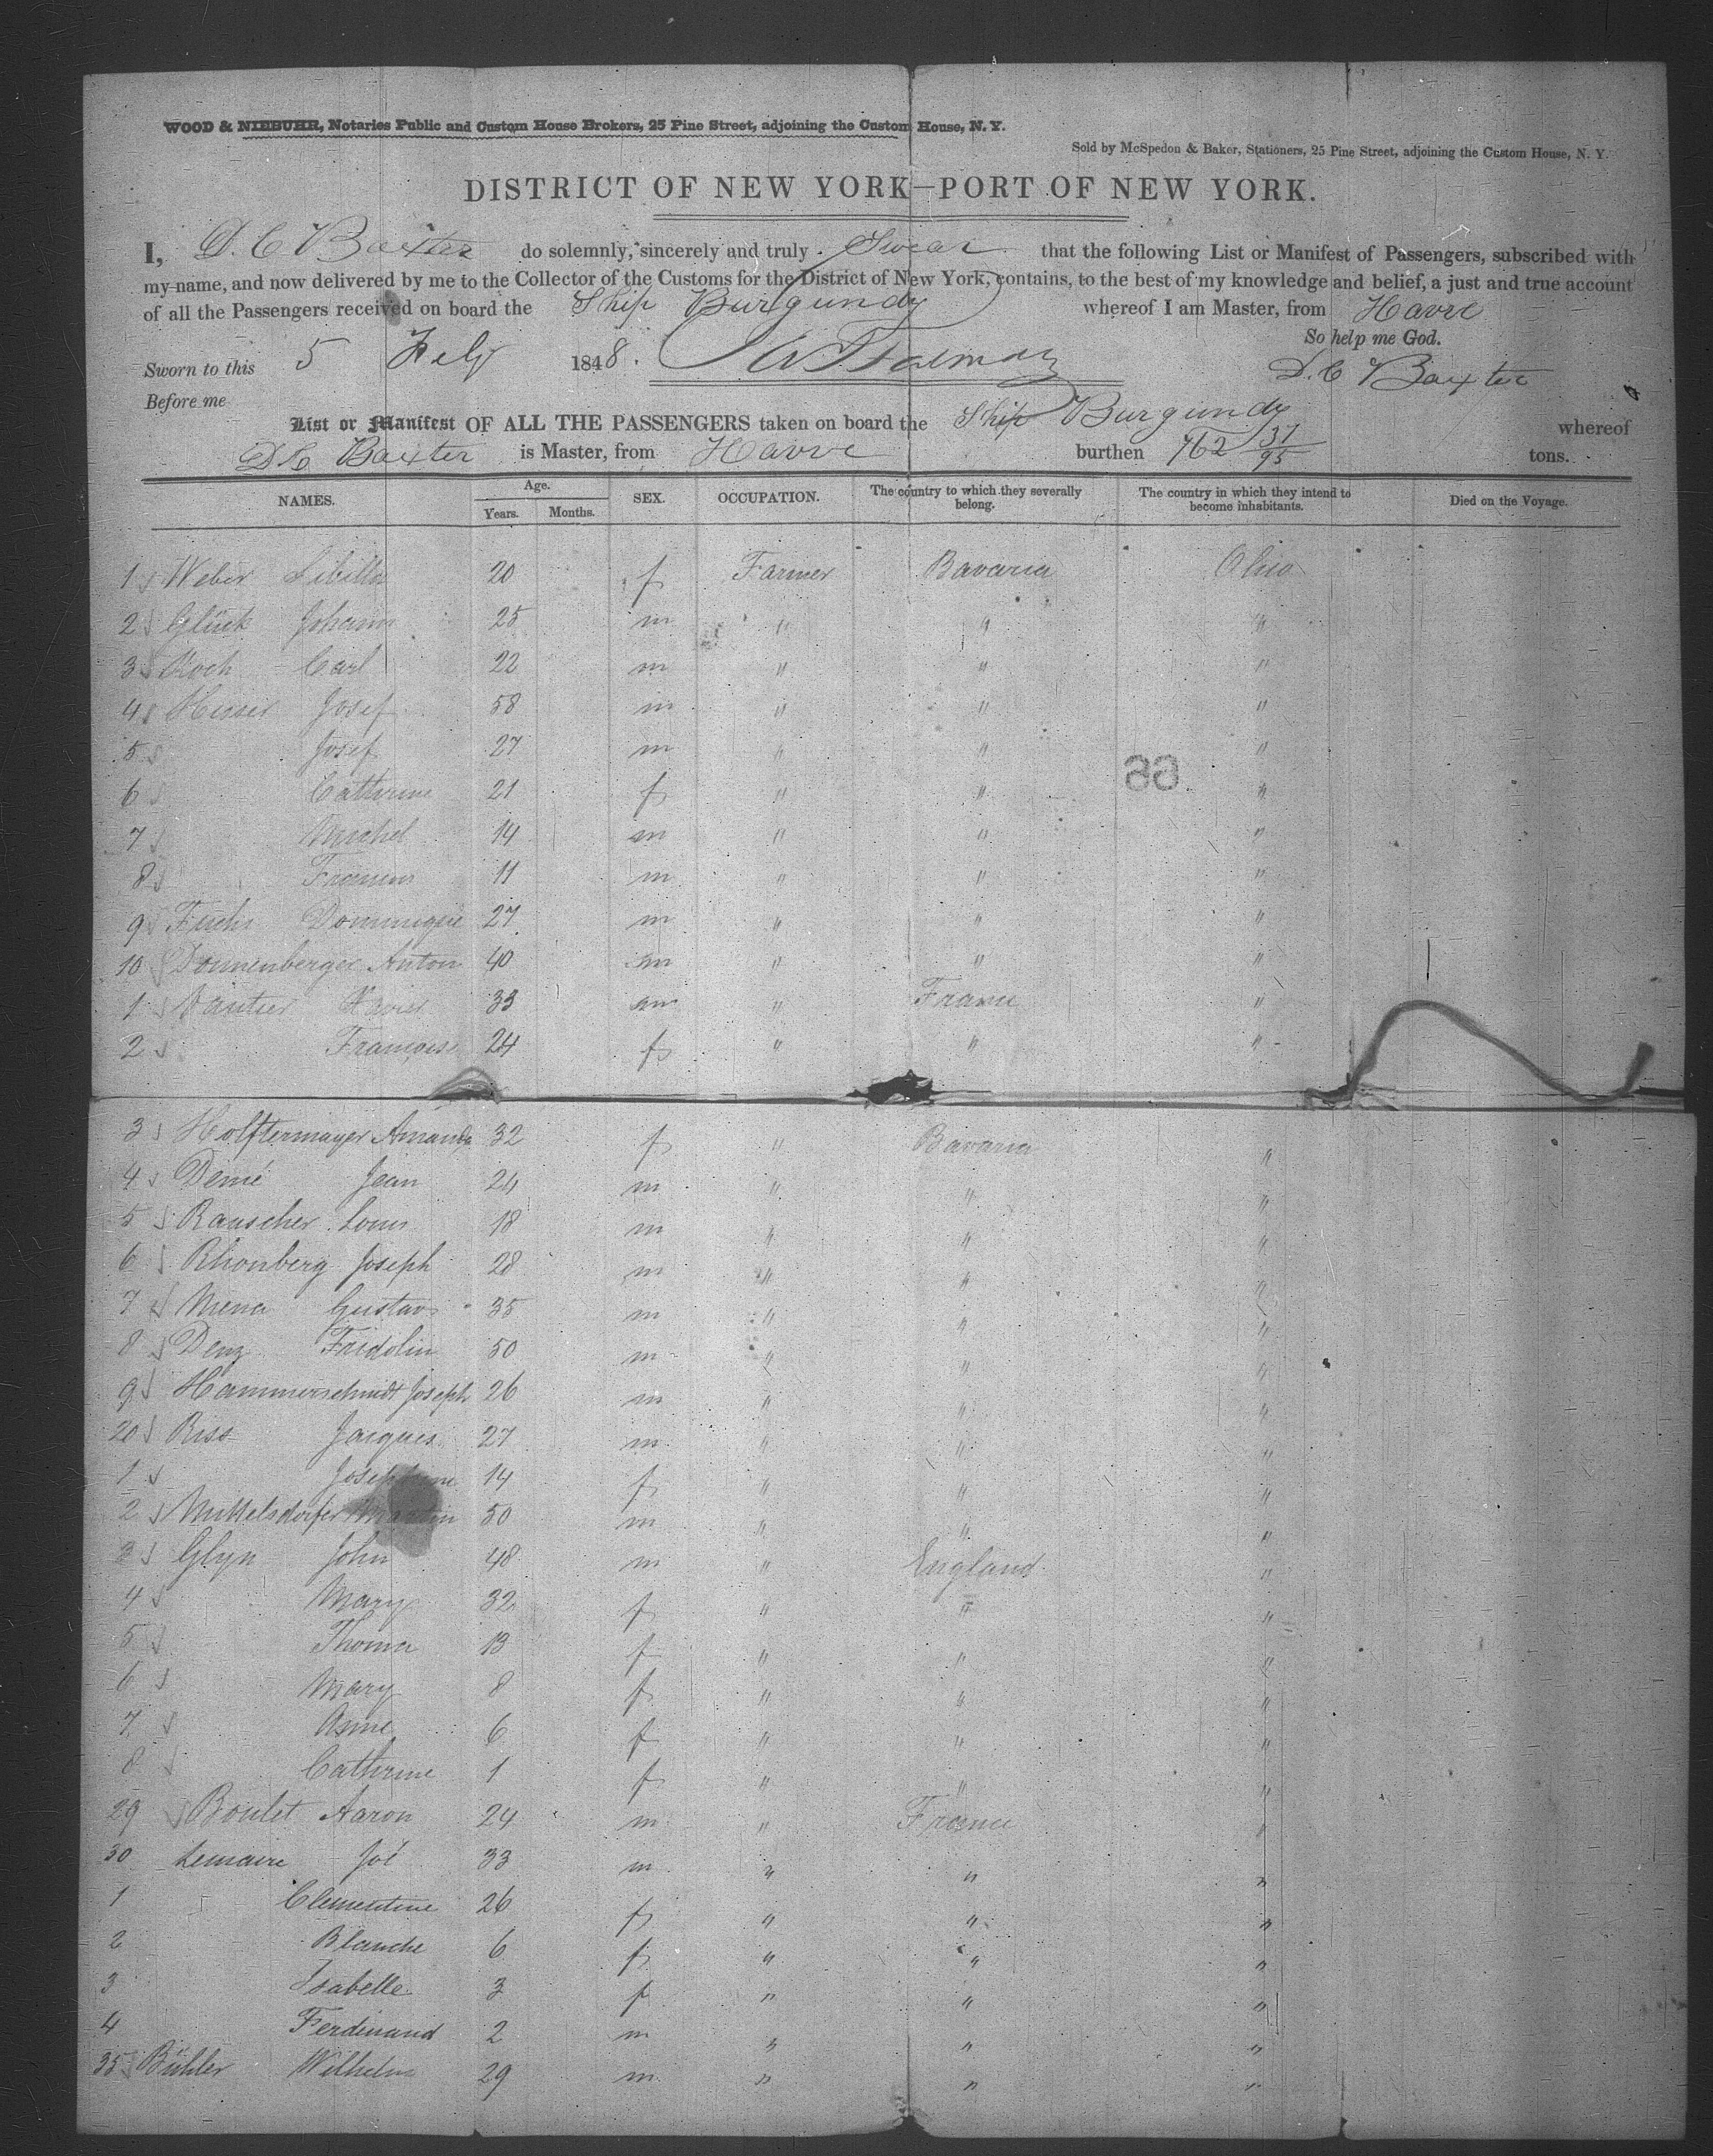 WOOD & NIEBUHR, Notaries Public and Custom House Brokers, 25 Pine Street, adjoining the Custom House, N. Y.
Sold by McSpedon & Baker, Stationers, 25 Pine Street, adjoining the Custom House, N. Y.
DISTRICT OF NEW YORK—PORT OF NEW YORK.
I, D. C Baxter do solemnly, sincerely and truly Swear that the following List or Manifest of Passengers, subscribed with
my name, and now delivered by me to the Collector of the Customs for the District of New York, contains, to the best of my knowledge and belief, a just and true account
of all the Passengers received on board the Ship Burgundy whereof I am Master, from Havre
So help me God.
Sworn to this 5 Feby 1848. D. C Baxter
Before me
List or Manifest OF ALL THE PASSENGERS taken on board the Ship Burgundy whereof
D C Baxter is Master, from Havre burthen 762 37/95 tons.
NAMES. Age. Years. Months. SEX. OCCUPATION. The country to which they severally belong. The country in which they intend to become inhabitants. Died on the Voyage.
1 Weber Sibilla 20 f Farmer Bavaria Ohio
2 Glück Johann 25 m " " "
3 Koch Carl 22 m " " "
4 Josef 58 m " " "
5 Josef 27 m " " "
66
6 Cathrine 21 f " " "
7 Michel 14 m " " "
8 11 m " " "
9 Fuchs Dominique 27 m " " "
10 Donnenberger Anton 40 m " " "
1 Vautier Xavier 33 m " France "
2 Francoise 24 f " " "
3 Holftermayer Amanda 32 f " Bavaria "
4 Demé Jean 24 m " " "
5 Rauscher Louis 18 m " " "
6 Rhonberg Joseph 28 m " " "
7 Mena Gustav 35 m " " "
8 Denz Fridolin 50 m " " "
9 Hammerschmidt Joseph 26 m " " "
20 Riss Jacques 27 m " " "
1 Josephine 14 f " " "
2 Mittelsdorfer Martin 50 m " " "
3 Glyn John 48 m " England "
4 Mary 32 f " " "
5 Thoma 13 f " " "
6 Mary 8 f " " "
7 Anne 6 f " " "
8 Cathrine 1 f " " "
29 Boulet Aaron 24 m " France "
30 Lemaire Joé 33 m " " "
1 Clementine 26 f " " "
2 Blanche 6 f " " "
3 Isabelle 3 f " " "
4 Ferdinand 2 m " " "
35 Bühler Wilhelm 29 m " " "